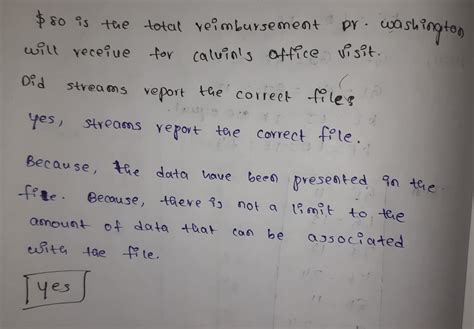 $80 is the total reimbursement Dr. Washington
will receive for calvin's office visit.
Did streams report the correct files
yes, streams report the correct file.
Because, the data have been presented in the
file. Because, there is not a limit to the
amount of data that can be associated
with the file.
yes